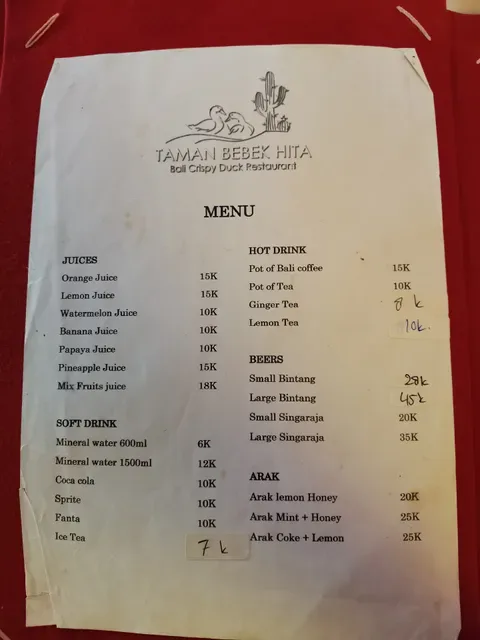 TAMAN BEBEK HITA
Bali Crispy Duck Restaurant
MENU
JUICES
Orange Juice 15K
Lemon Juice 15K
Watermelon Juice 10K
Banana Juice 10K
Papaya Juice 10K
Pineapple Juice 15K
Mix Fruits juice 18K
SOFT DRINK
Mineral water 600ml 6K
Mineral water 1500ml 12K
Coca cola 10K
Sprite 10K
Fanta 10K
Ice Tea 7k
HOT DRINK
Pot of Bali coffee 15K
Pot of Tea 10K
Ginger Tea 8k
Lemon Tea 10k.
BEERS
Small Bintang 28k
Large Bintang 45k
Small Singaraja 20K
Large Singaraja 35K
ARAK
Arak lemon Honey 20K
Arak Mint + Honey 25K
Arak Coke + Lemon 25K